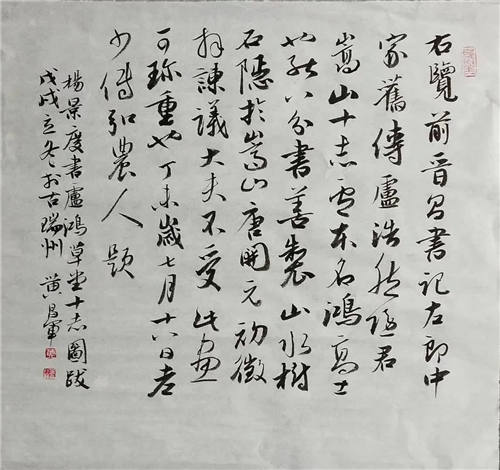 右覽前晉昌書記左郎中
家舊傳盧浩然隱君
嵩山十志盧本名鴻高士
也能八分書善製山水樹
石隱於嵩山唐開元初徵
拜諫議大夫不受此畫
可珍重也丁未歲七月十八日老
少傅弘農人題
楊景度書盧鴻草堂十志圖跋
戊戌立冬於古瑞州 黄昌軍